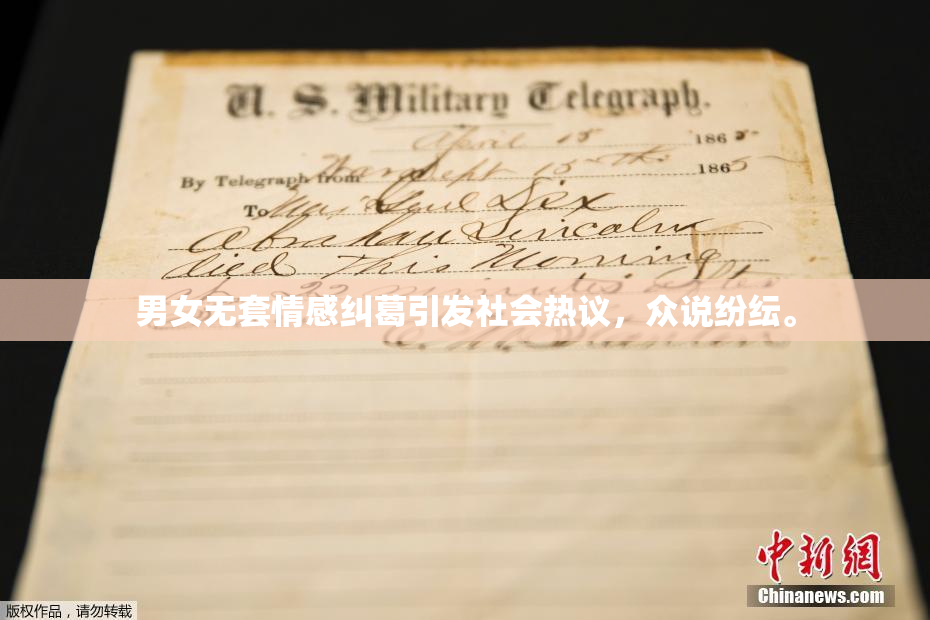 U. S. Military Telegraph.
April 15 1865
By Telegraph from War Dept 15th 1865
To Maj Genl Dix
Abraham Lincoln
died This Morning
22 minutes after
男女无套情感纠葛引发社会热议，众说纷纭。
E. M. Stanton
中新网
Chinanews.com
版权作品，请勿转载